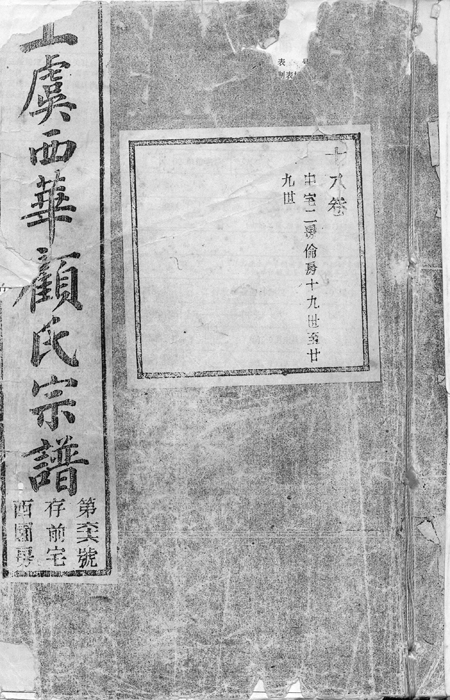 上虞西華顧氏宗譜
第六六號
存前宅
西園房
十八卷
中宅二房倫房十九世至廿
九世